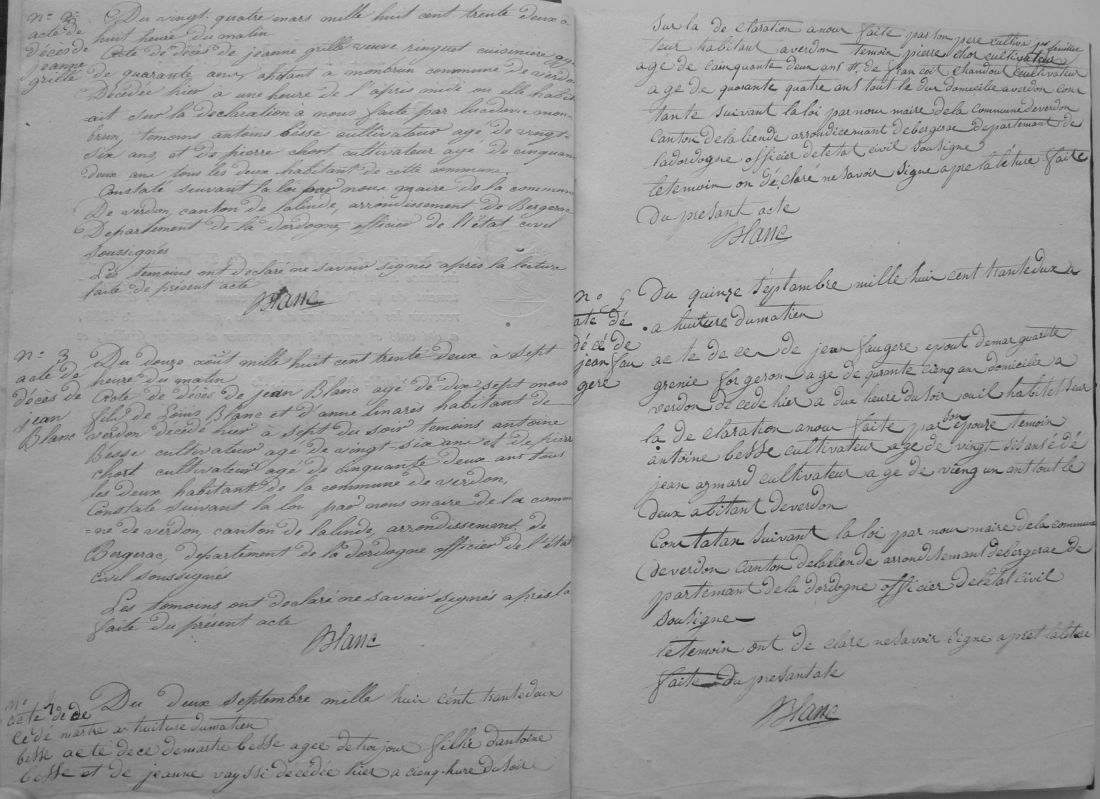 n.o 2.
acte de
décès de
jeanne
grille
Du vingt quatre mars mille huit cent trente deux à
huit heure du matin
Acte de décès de jeanne grille veuve ringuet cuisiniere agée
de quarante ans, habitant à monbrun commune de verdon
Décédée hier a une heure de l'apres midi ou elle habit
ait sur la déclaration à nous faite par mon-
brun, temoins, antoine besse cultivateur agé de vingt-
six ans, et de pierre chort cultivateur agé de cinquan
deux ans tous les deux habitant de cette commune,
Constaté suivant la loi par nous maire de la commune
De verdon, canton de lalinde, arrondissement de Bergerac
Departement de la dordogne, officier de l'état civil
soussignés
Les temoins ont déclaré ne savoir signés après la lecture
faite de présent acte
Blanc
n.o 3
acte de
décès de
jean
Blanc
Du douze août mille huit cent trente deux à sept
heure du matin
Acte de décès de jean Blanc agé de dix sept mois
fils de Louis Blanc et d'anne linarès habitant de
verdon décédé hier à sept du soir temoins antoine
Besse cultivateur agé de vingt-six ans et de pierre
chort cultivateur agé de cinquante deux ans tous
les deux habitant de la commune de verdon,
Constaté suivant la loi par nous maire de la commu
=ne de verdon, canton de lalinde, arrondissement, de
Bergerac, departement de la dordogne officier de l'état
civil soussignés
Les temoins ont declaré ne savoir signés après la
faite du présent acte
Blanc
n.o 4
acte de de
ce de marte
besse
Du deux septembre mille huir cent trante deux
a huiture dumatien
acte dece de martre besse agee de troi jour fillie dantoine
besse et de jeanne vayssi décédée hier a cienq hure du soire
sur la de claration a nour faite par son pere cultiva
teur habitant averdon temoin pierre chor cultivateur
age de cainquante deux ant et de francoit chandou cultivateur
age de quorante quatre ant tout le dur domicilie averdon cons
tante suivant la loi par nour maire de la commune deverdon
canton de la liende arrondicemant debergerac departemant de
ladordogne officier deletat civil sousigne
letemoin on dé clare ne savoir signe a pre la léture faite
Du presant acte
Blanc
n.o 5
ate dé
dé cé de
jean fau
gere
Du quinze séptambre mille huir cent trantedux
a huiture dumatien
acte de ce de jean faugere epout demarguarite
grenie forgeron age de quarante cienq an domicilie a
verdon de cede hier a dux heure du soir ouil habitet sur
la de claration a nour faite par son epouse temoin
antoine besse cultivateur age de vingt sis an é dé
jean aymard cultivateur age de vieng un ant tout le
deux abitant deverdon
Constatan suivant la loi par nour maire de la commune
deverdon canton delaliende arrondisemant debergerac de
partemant de la dordogne officier deletat civil
sousigne
le temoin ont de clare ne savoir signe a pret laleture
faite du presant ate
Blanc